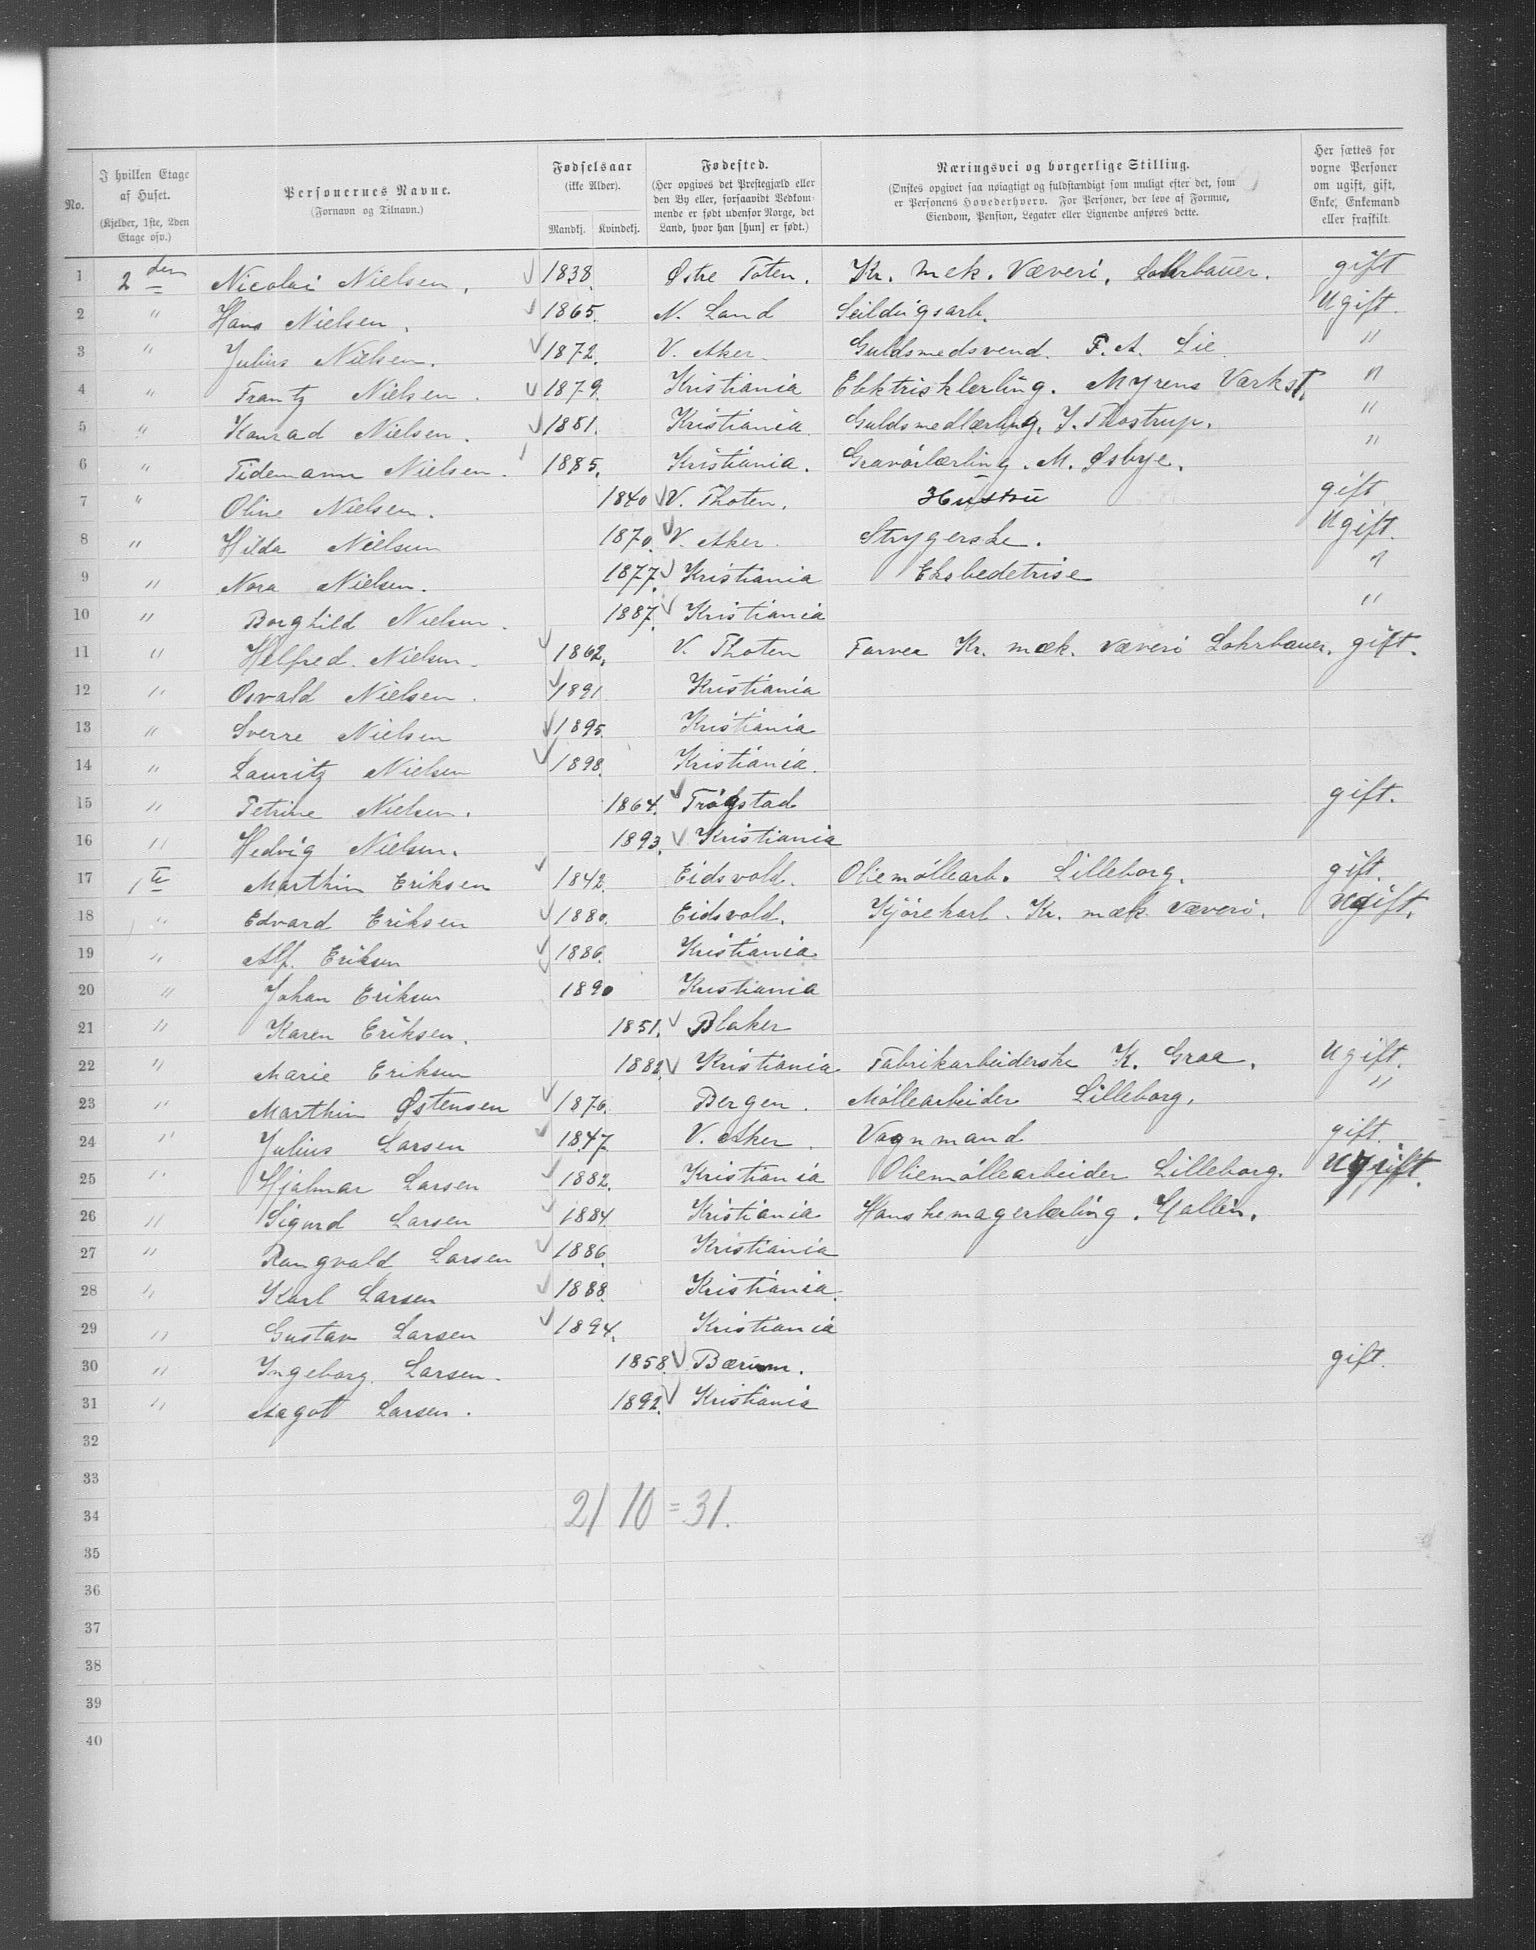 No. | I hvilken Etage af Huset. (Kjelder, 1ste, 2den Etage osv.) | Personernes Navne. (Fornavn og Tilnavn.) | Fødselsaar (ikke Alder). Mandkj. Kvindekj. | Fødested. (Her opgives det Prestegjæld eller den By eller, forsaavidt Vedkommende er født udenfor Norge, det Land, hvor han [hun] er født.) | Næringsvei og borgerlige Stilling. (Ønskes opgivet saa nøiagtigt og fuldstændigt som muligt efter det, som er Personens Hovederhverv. For Personer, der leve af Formue, Eiendom, Pension, Legater eller Lignende anføres dette. | Her sættes for vorne Personer om ugift, gift, Enke, Enkemand eller fraskilt.
1 2den Nicolai Nielsen. 1838. Østre Toten. Kr. mek. Væveri, Lohrbauer. gift
2 " Hans Nielsen. 1865. N. Land Seildugsarb. Ugift.
3 " Julius Nielsen. 1872. V. Aker. Guldsmedsvend. F. A. Lie. "
4 " Frantz Nielsen. 1879. Kristiania Elektrisklerling. Myrens Værkst. "
5 " Konrad Nielsen. 1881. Kristiania. Guldsmedlærling, J. Thostrup. "
6 " Tidemann Nielsen. 1885. Kristiania. Gravörlærling. M. Øsbye. "
7 " Oline Nielsen. 1840 V. Thoten. Hustru gift
8 " Hilda Nielsen 1870. V. Aker. Strygerske. Ugift.
9 " Nora Nielsen. 1877. Kristiania Eksbedetrise "
10 " Borghild Nielsen. 1887. Kristiania "
11 " Helfred. Nielsen. 1862. V. Thoten Farver Kr. mæk. væveri Lohrbauer. gift.
12 " Osvald Nielsen. 1891 Kristiania
13 " Sverre Nielsen 1895. Kristiania
14 " Lauritz Nielsen 1898. Kristiania.
15 " Petrine Nielsen. 1864. Trøgstad gift.
16 " Hedvig Nielsen. 1893. Kristiania
17 1te Marthin Eriksen 1842. Eidsvold. Oliemøllearb. Lilleborg. gift.
18 " Edvard Eriksen 1880. Eidsvold. Kjørekarl. Kr. mæk. væveri. Ugift.
19 " Alf. Eriksen 1886. Kristiania
20 " Johan Eriksen 1890 Kristiania
21 " Karen Eriksen. 1851. Blaker
22 " Marie Eriksen 1882. Kristiania Fabrikarbeiderske K. Graa. Ugift.
23 " Marthin Østensen 1876. Bergen. Møllearbeider Lilleborg. "
24 " Julius Larsen 1847. V. Aker. Vognmand gift.
25 " Hjalmar Larsen 1882. Kristiania Oliemøllearbeider Lilleborg. Ugift.
26 " Sigurd Larsen 1884 Kristiania Hanskemagerlærling. Gallin.
27 " Rangvald Larsen 1886. Kristiania
28 " Karl Larsen 1888. Kristiania.
29 " Gustav Larsen 1894. Kristiania
30 " Ingeborg Larsen. 1858. Bærum. gift.
31 " Aagot Larsen. 1892. Kristiania
32
33
34 21 10 = 31.
35
36
37
38
39
40